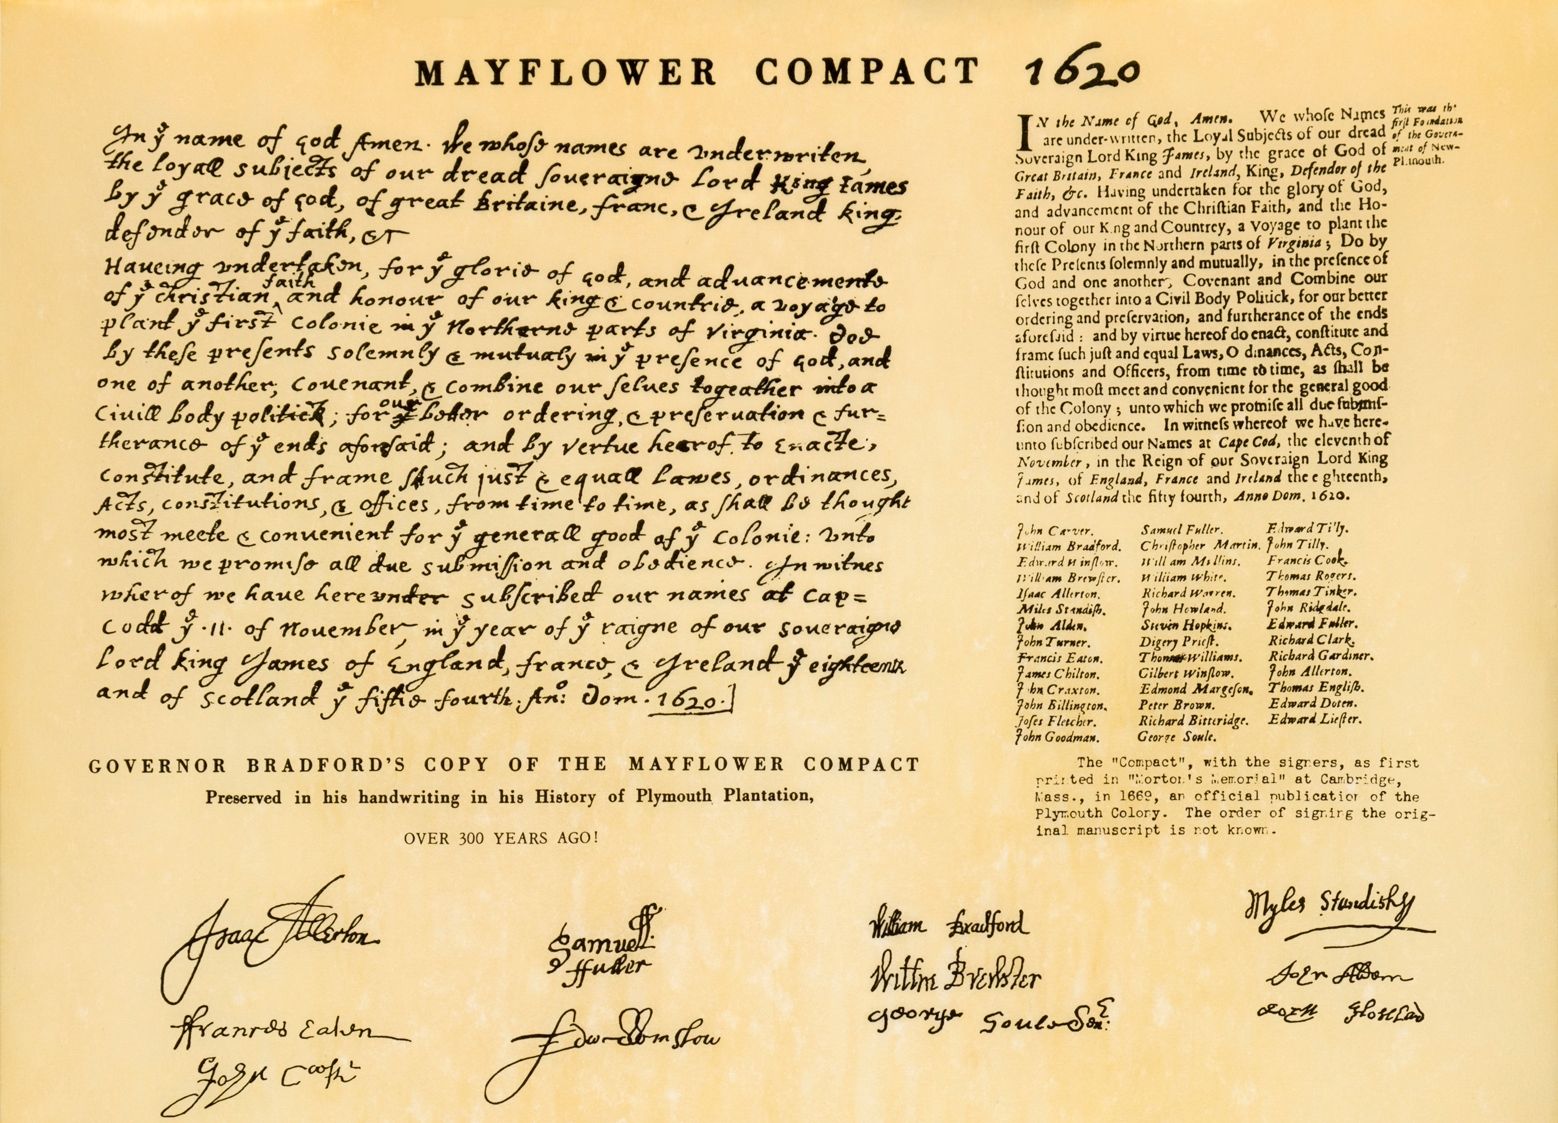 MAYFLOWER COMPACT 1620
In yͤ name of god Amen. We whose names are vnderwriten,
the loyall subjects of our dread soueraigne lord King Iames
by yͤ grace of god, of great Britaine, franc, & Ireland king,
defender of yͤ faith, &c
Haueing vndertaken, for yͤ glorie of god, and advancemente
of yͤ christian faith and honour of our king & countrie, a voyage to
plant yͤ first colonie in yͤ Northerne parts of Virginia. Doe
by these presents solemnly & mutualy in yͤ presence of god, and
one of another, couenant, & combine our selues togeather into a
Civill body politick; for our better ordering, & preservation & fur=
therance of yͤ ends aforesaid; and by vertue hearof to Enacte,
constitute, and frame such just & equall lawes, ordinances,
Acts, constitutions, & offices, from time to time, as shall be thought
most meete & convenient for yͤ generall good of yͤ Colonie: vnto
which we promise all due submission and obedience. In witnes
wherof we have herevnder subscribed our names at Cap=
Codd yͤ .11. of November, in yͤ year of yͤ raigne of our soveraigne
lord king James of England, france, & Ireland yͤ eighteenth
and of Scotland yͤ fiftie fourth. An°: Dom. 1620.]
GOVERNOR BRADFORD'S COPY OF THE MAYFLOWER COMPACT
Preserved in his handwriting in his History of Plymouth Plantation,
OVER 300 YEARS AGO!
IN the Name of God, Amen. We whoſe Names
are under-written, the Loyal Subjects of our dread
Soveraign Lord King James, by the grace of God of
Great Britain, France and Ireland, King, Defendor of the
Faith, &c. Having undertaken for the glory of God,
and advancement of the Chriſtian Faith, and the Ho-
nour of our King and Countrey, a Voyage to plant the
firſt Colony in the Northern parts of Virginia; Do by
theſe Preſents ſolemnly and mutually, in the preſence of
God and one another, Covenant and Combine our
ſelves together into a Civil Body Politick, for our better
ordering and preſervation, and furtherance of the ends
aforeſaid: and by virtue hereof do enact, conſtitute and
frame ſuch juſt and equal Laws, Ordinances, Acts, Con-
ſtitutions and Officers, from time to time, as ſhall be
thought moſt meet and convenient for the general good
of the Colony; unto which we promiſe all due ſubmiſ-
ſion and obedience. In witneſs whereof we have here-
unto ſubſcribed our Names at Cape Cod, the eleventh of
November, in the Reign of our Soveraign Lord King
James, of England, France and Ireland the eighteenth,
and of Scotland the fifty fourth, Anno Dom. 1620.
This was the
firſt Foundation
of the Govern-
ment of New-
Plimouth.
John Carver. Samuel Fuller. Edward Tilly.
William Bradford. Chriſtopher Martin. John Tilly.
Edward Winſlow. William Mullins. Francis Cook.
William Brewſter. William White. Thomas Rogers.
Iſaac Allerton. Richard Warren. Thomas Tinker.
Miles Standiſh. John Howland. John Ridgdale.
John Alden. Steven Hopkins. Edward Fuller.
John Turner. Digery Prieſt. Richard Clark.
Francis Eaton. Thomas Williams. Richard Gardiner.
James Chilton. Gilbert Winſlow. John Allerton.
John Craxton. Edmond Margeſon. Thomas Engliſh.
John Billington. Peter Brown. Edward Doten.
Joſes Fletcher. Richard Bitteridge. Edward Lieſter.
John Goodman. George Soule.
The "Compact", with the signers, as first
printed in "Morton's Memorial" at Cambridge,
Mass., in 1669, an official publication of the
Plymouth Colony. The order of signing the orig-
inal manuscript is not known.
Isaac Allerton
Samuell
ffuller
William Bradford
Myles Standish
Willm Brewster
George Soule Sen:
Francis Eaton
Edw Winslow
John Cooke